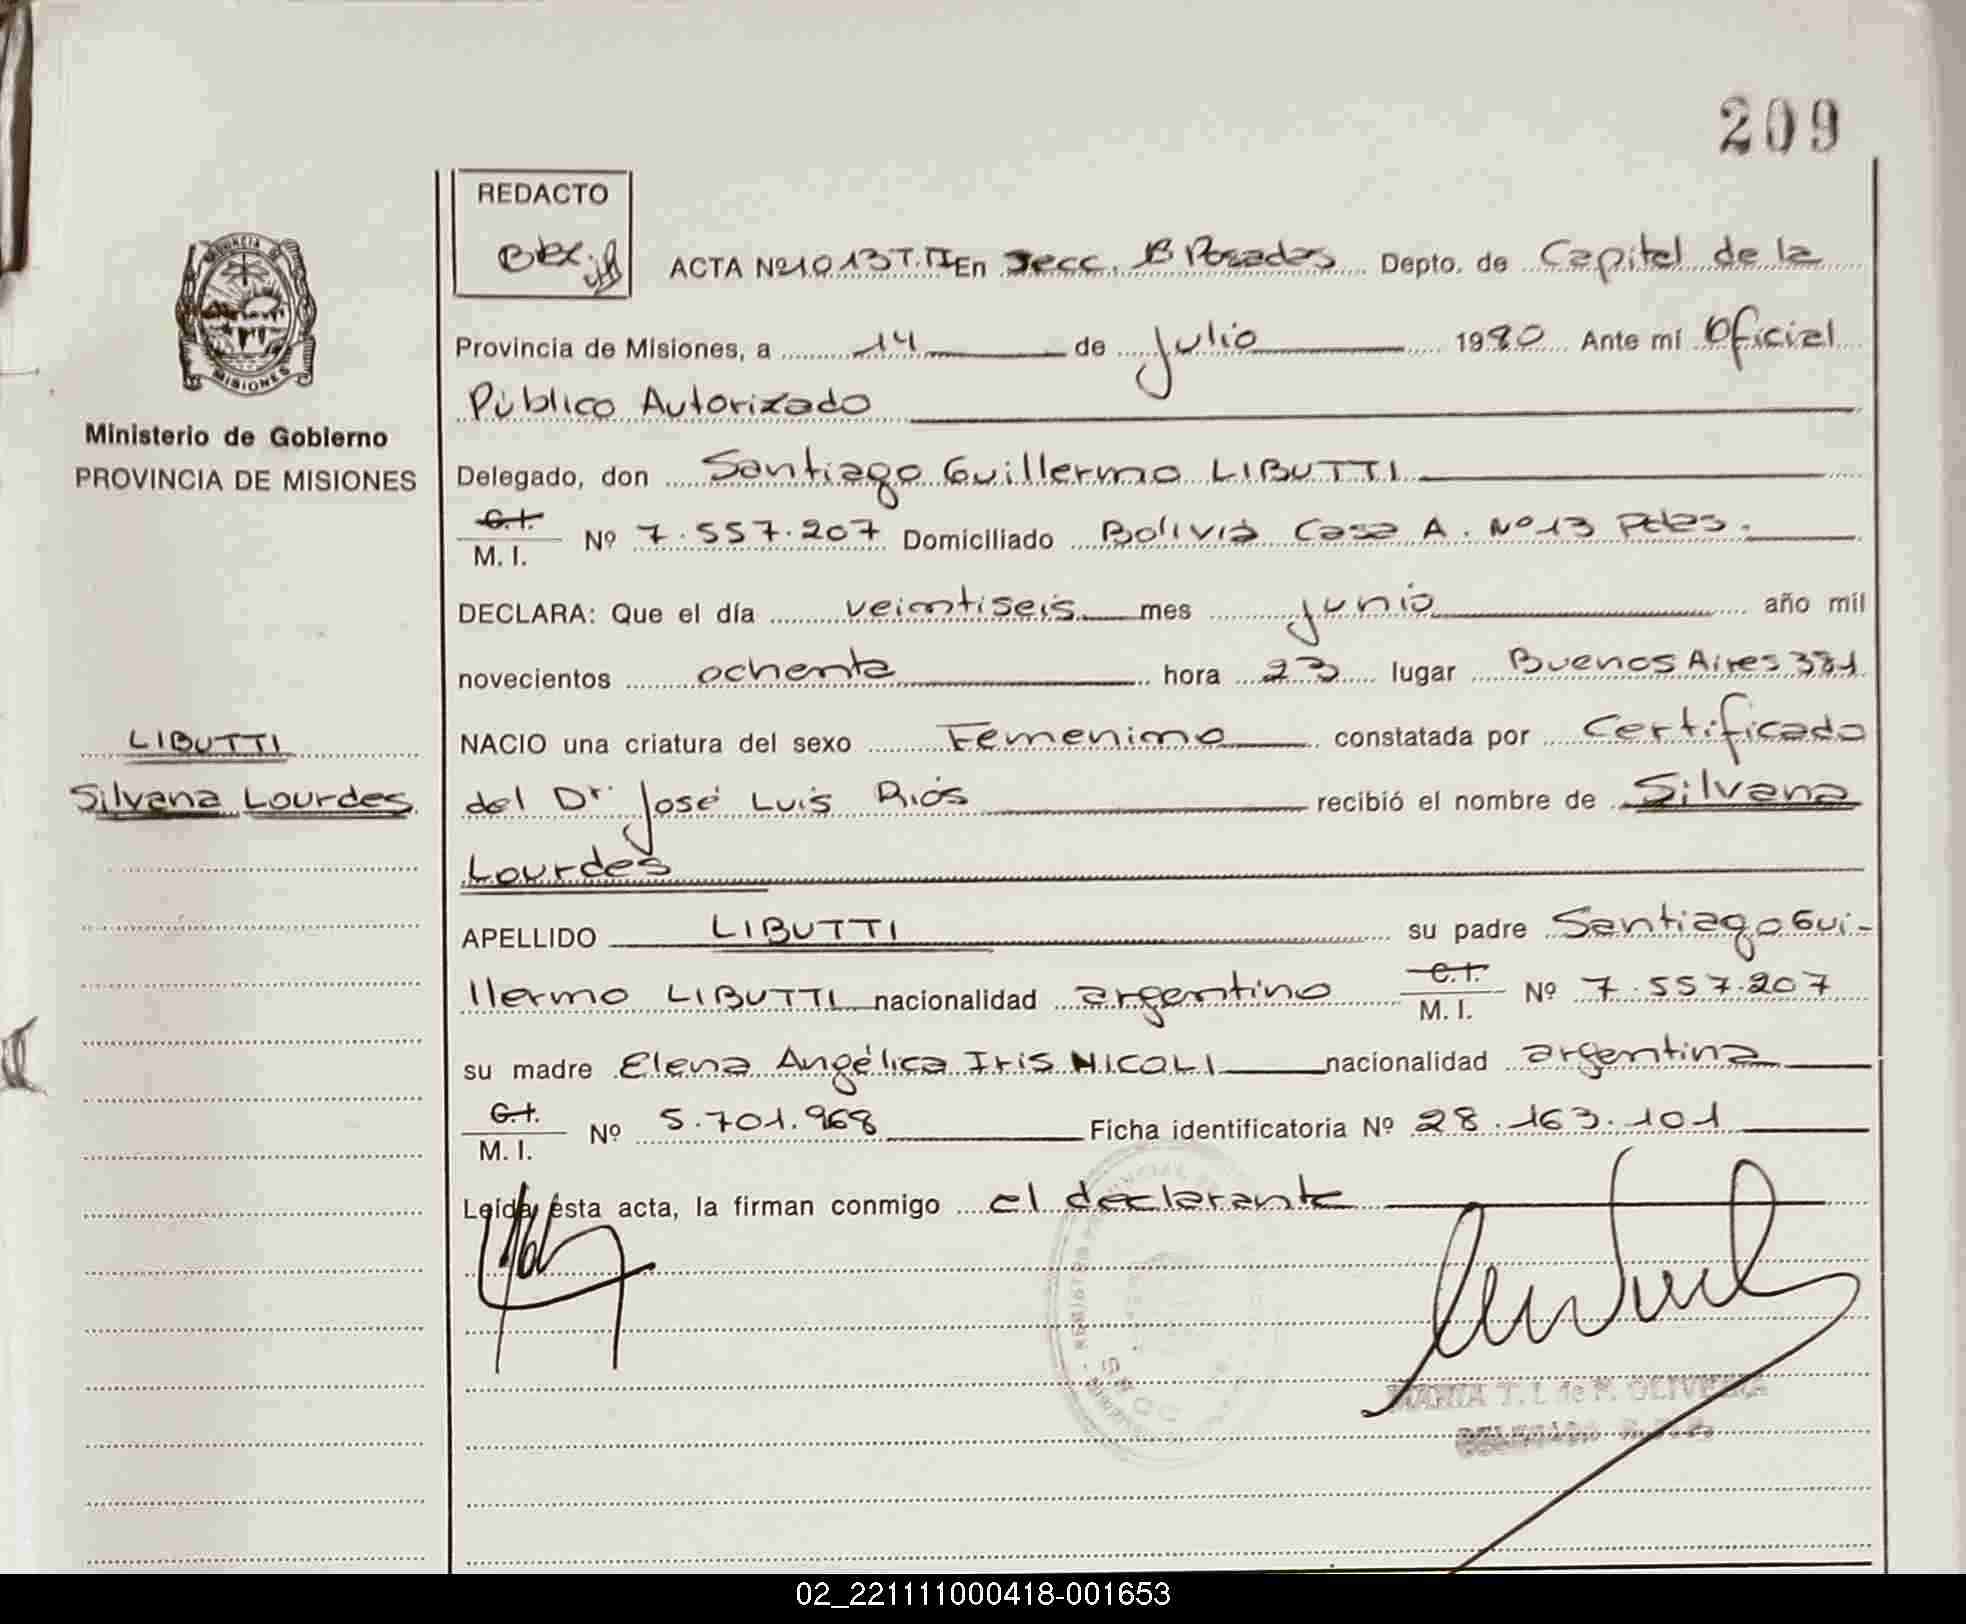 209
REDACTO
ACTA Nº 1013 T.II En Secc. B Posadas Depto. de Capital de la
Provincia de Misiones, a 14 de Julio 1980 Ante mí Oficial
Público Autorizado
Delegado, don Santiago Guillermo LIBUTTI
C.I. / M. I. Nº 7.557.207 Domiciliado Bolivia Casa A. Nº 13 Pdas.
DECLARA: Que el día veintiseis mes junio año mil
novecientos ochenta hora 23 lugar Buenos Aires 381
NACIO una criatura del sexo Femenino constatada por Certificado
del Dr. José Luis Rios recibió el nombre de Silvana
Lourdes
APELLIDO LIBUTTI su padre Santiago Gui-
llermo LIBUTTI nacionalidad argentino C.I. / M. I. Nº 7.557.207
su madre Elena Angélica Iris NICOLI nacionalidad argentina
C.I. / M. I. Nº 5.701.968 Ficha identificatoria Nº 28.163.101
Leída esta acta, la firman conmigo el declarante
MARIA T. I. de F. OLIVEIRA
PROVINCIA
MISIONES
Ministerio de Gobierno
PROVINCIA DE MISIONES
LIBUTTI
Silvana Lourdes
02_221111000418-001653